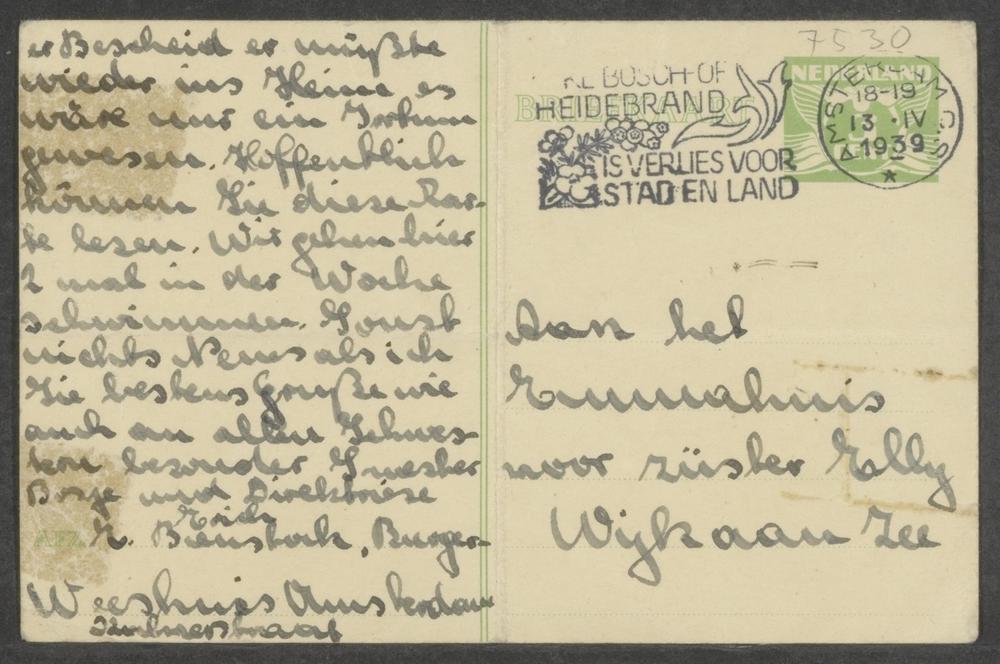 er Bescheid er müßte
wieder ins Heim es
wäre nur ein Irrtum
gewesen. Hoffentlich
können Sie diese Kar-
te lesen. Wir gehen hier
2 mal in der Woche
schwimmen. Sonst
nichts Neues als ich
Sie bestens Grüße wie
auch an allen Schwes-
tern besonder Suester
und Direktriese
Erich
E. Bienstock, Burger-
Weeshuis Amsterdam
AFZ.
7530
NEDERLAND
BRIEFKAART
BOSCH OF
HEIDEBRAND
IS VERLIES VOOR
STAD EN LAND
AMSTERDAM C.S.
18-19
13 IV
1939
Aan het
Emmahuis
voor züster Elly
Wijk aan Zee